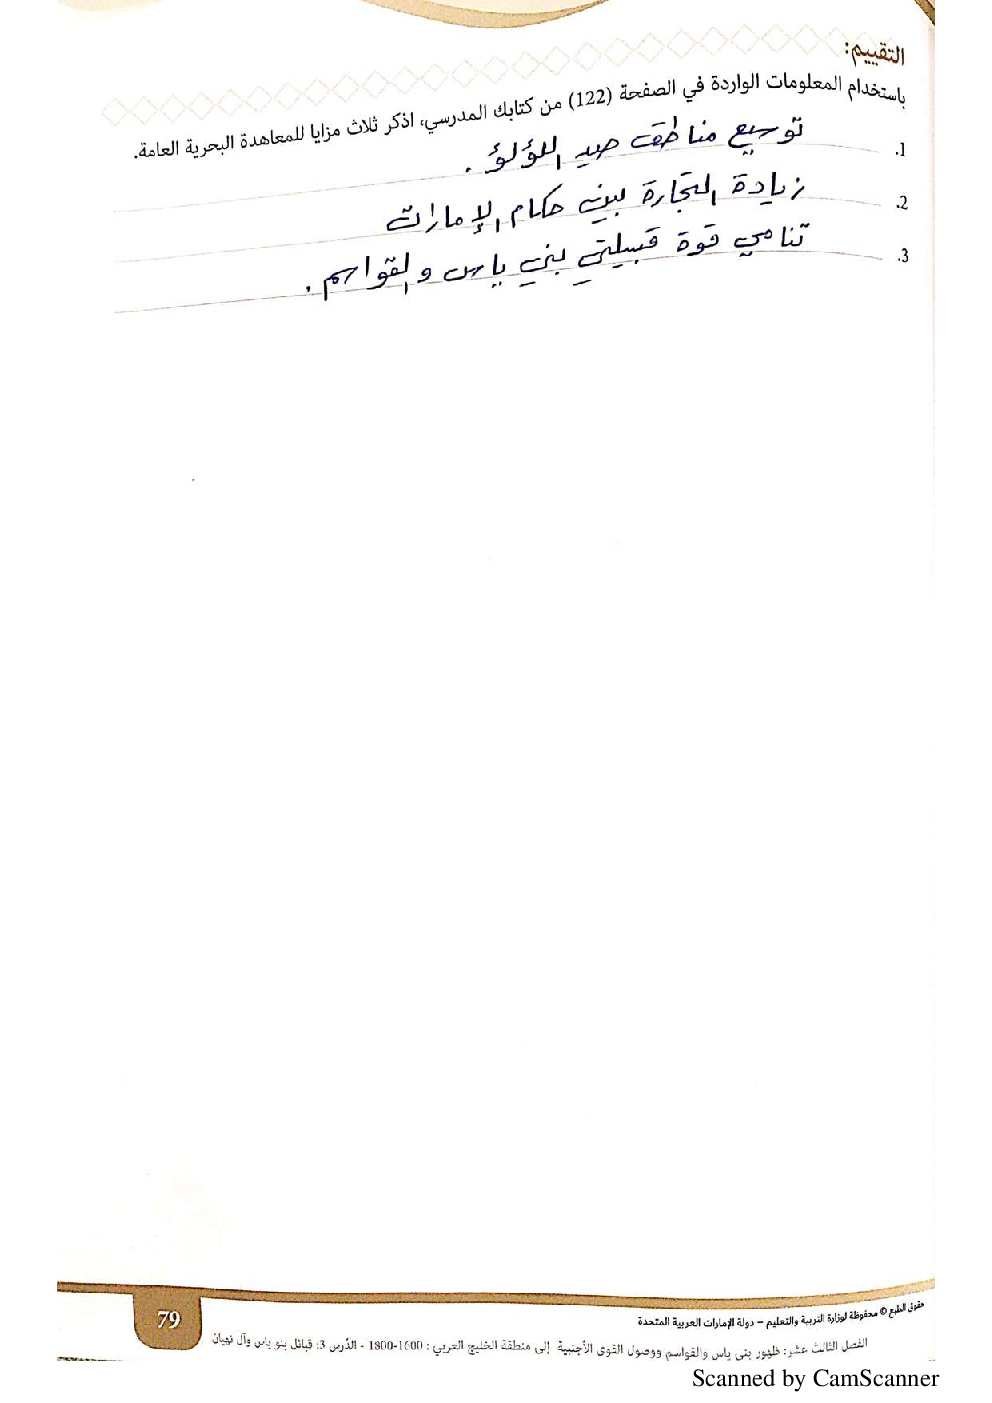 التقييم:
باستخدام المعلومات الواردة في الصفحة (122) من كتابك المدرسي، اذكر ثلاث مزايا للمعاهدة البحرية العامة.
1. توسيع مناطق صيد اللؤلؤ.
2. زيادة التجارة بين حكام الإمارات
3. تنامي قوة قبيلتي بني ياس والقواسم.
حقوق الطبع © محفوظة لوزارة التربية والتعليم – دولة الإمارات العربية المتحدة
79
الفصل الثالث عشر: ظهور بني ياس والقواسم ووصول القوى الأجنبية إلى منطقة الخليج العربي: 1600-1800 - الدرس 3: قبائل بنو ياس وآل نهيان
Scanned by CamScanner